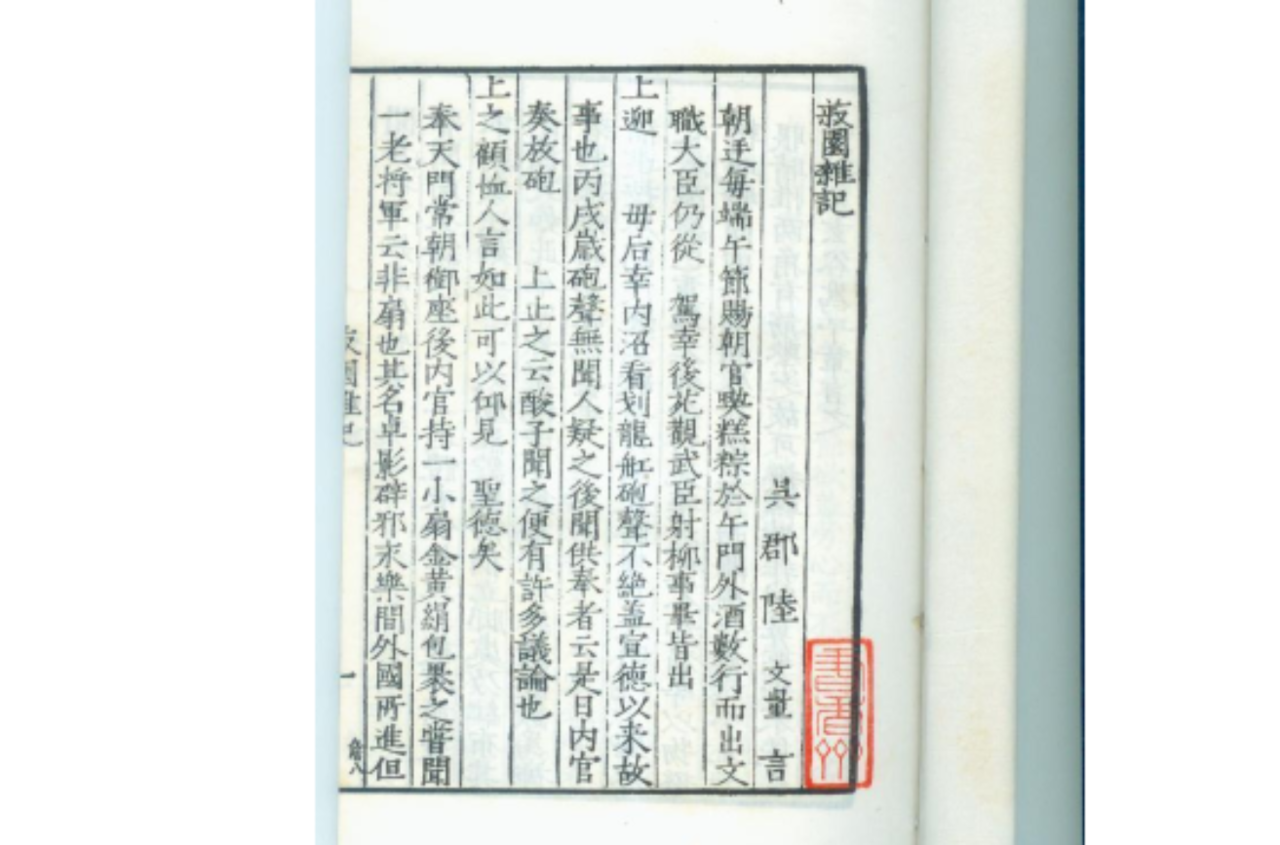 菽園雜記
吳郡陸文量言
朝廷每端午節賜朝官喫糕粽於午門外酒數行而出文
職大臣仍從 駕幸後苑觀武臣射柳事畢皆出
上迎 母后幸內沼看划龍舡砲聲不絕盖宣德以来故
事也丙戌歲砲聲無聞人疑之後聞供奉者云是日內官
奏放砲 上止之云酸子聞之便有許多議論也
上之顧恤人言如此可以仰見 聖德矣
奉天門常朝御座後內官持一小扇金黃絹包裹之嘗聞
一老將軍云非扇也其名卓影辟邪永樂間外國所進但
菽園雜記
一